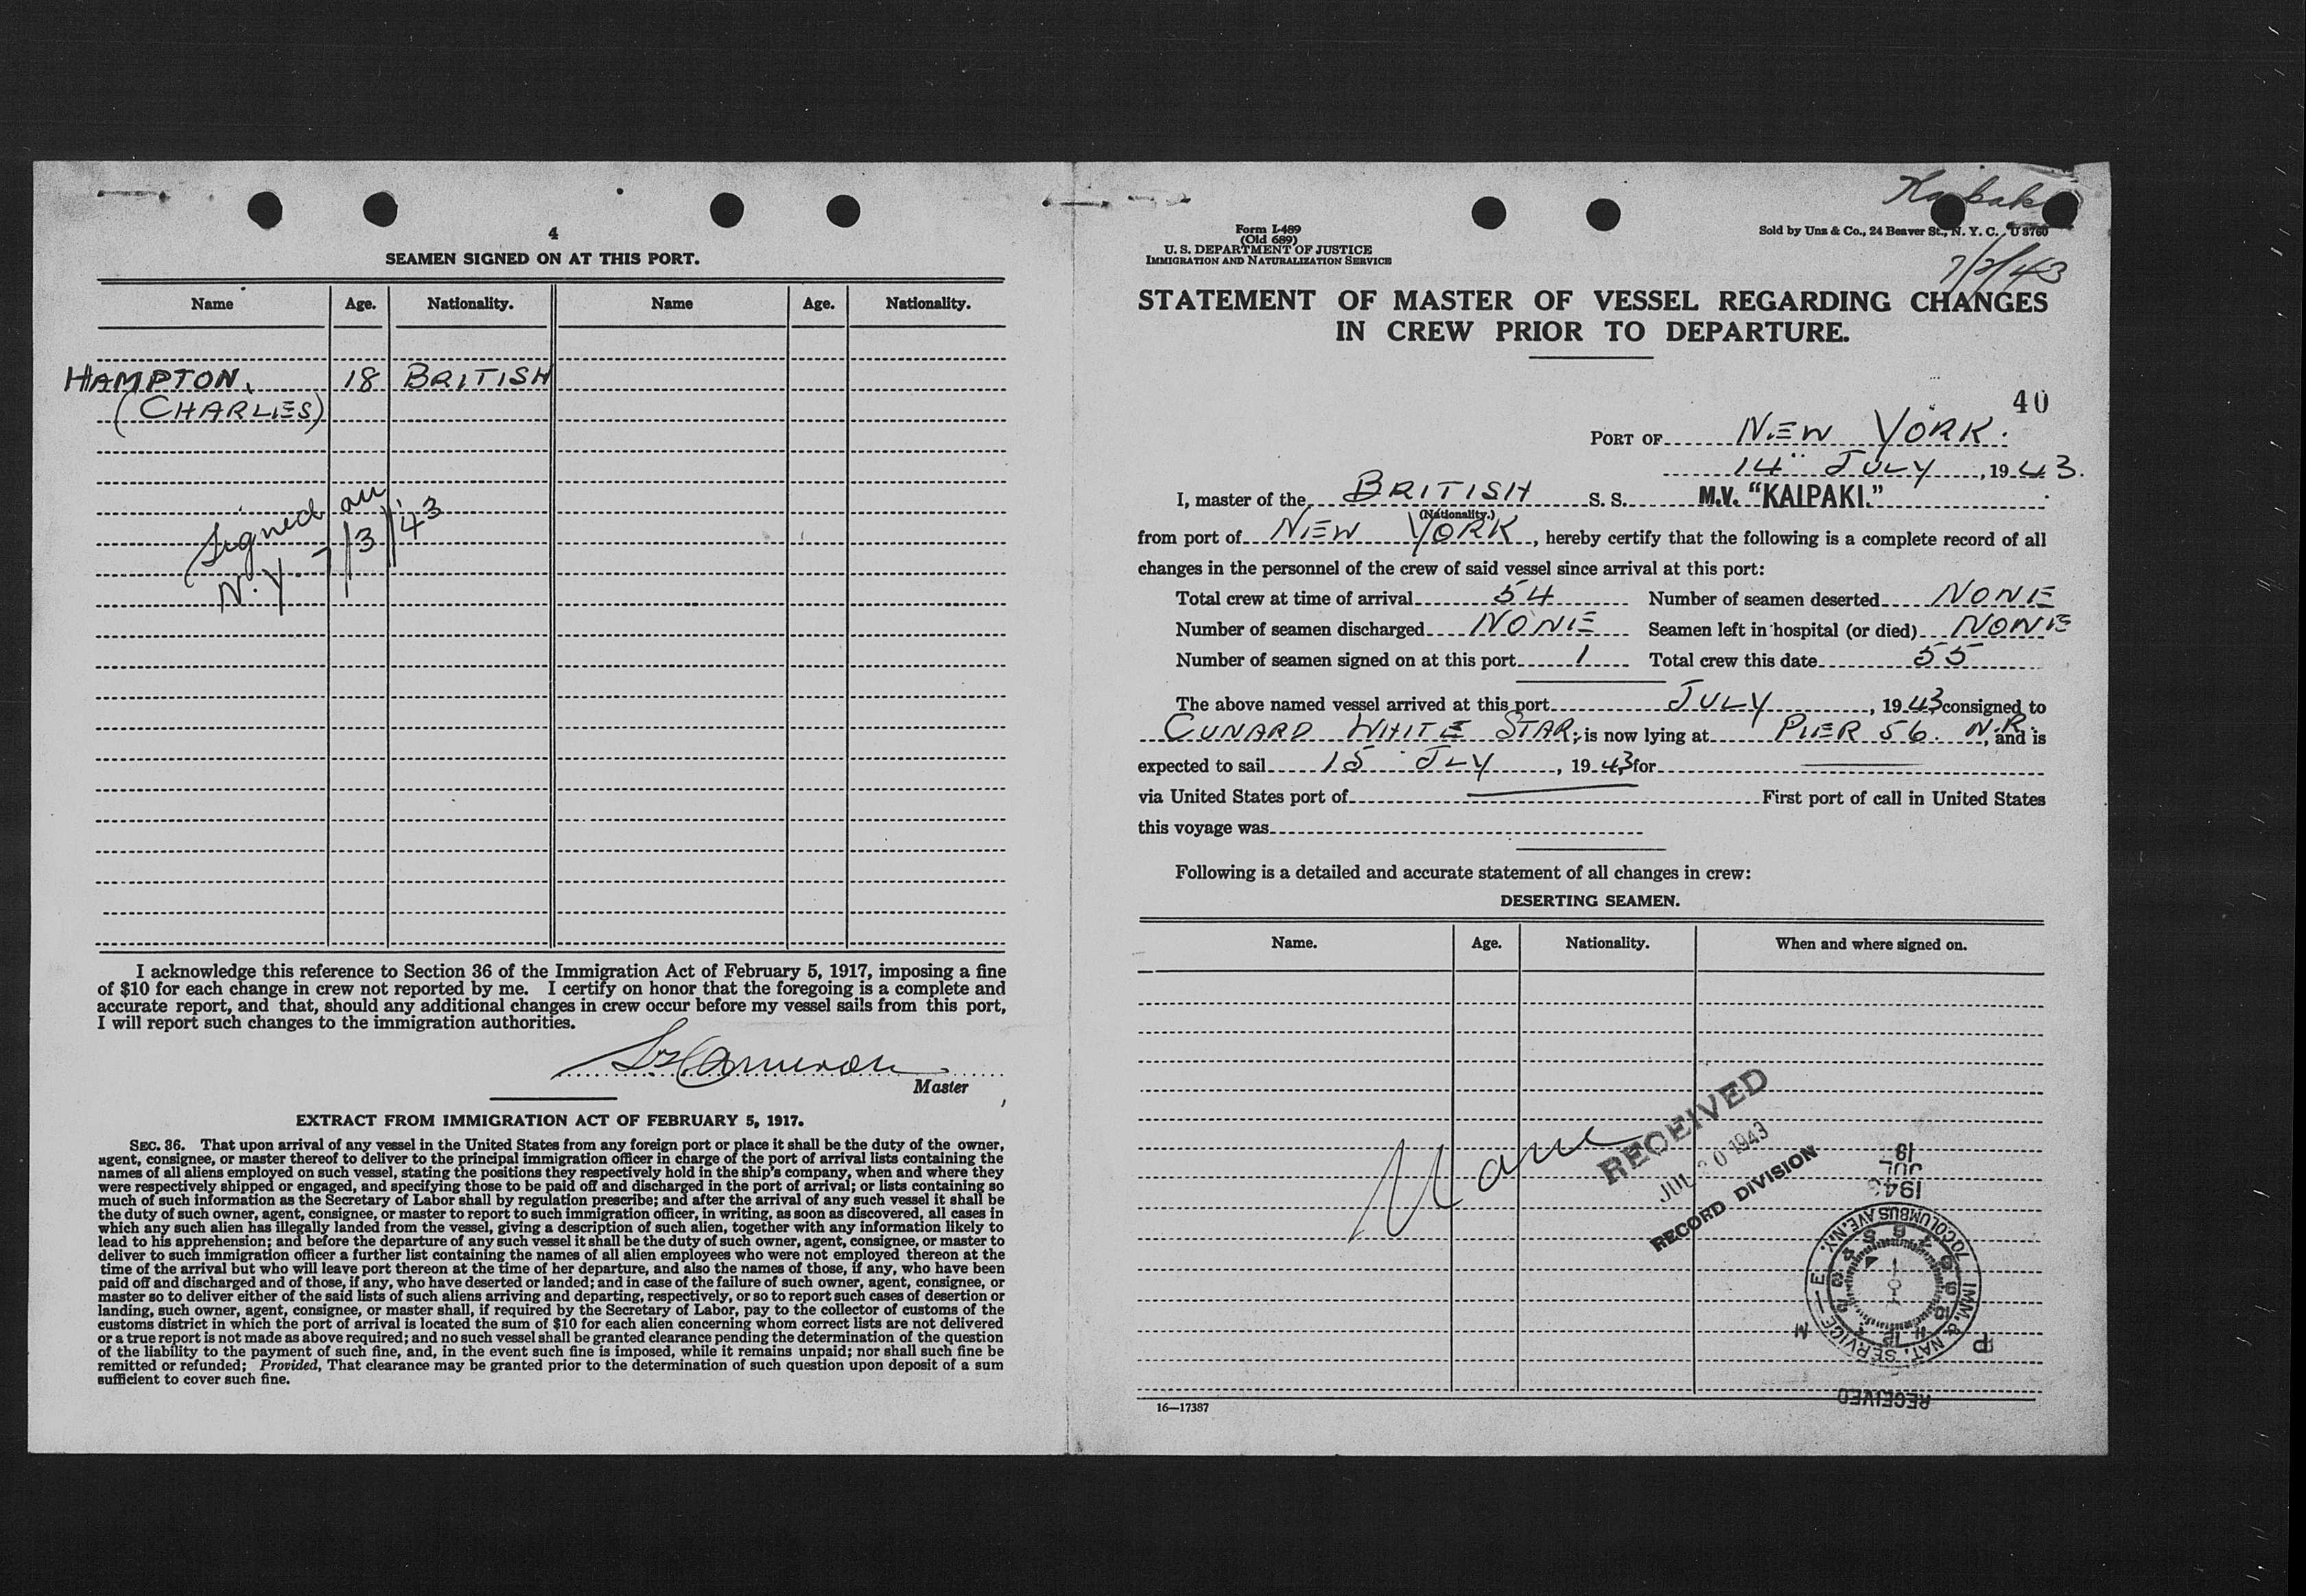 4
SEAMEN SIGNED ON AT THIS PORT.
Name Age. Nationality. Name Age. Nationality.
HAMPTON, 18 BRITISH
(CHARLES)
Signed on
N.Y. 7/3/43
I acknowledge this reference to Section 36 of the Immigration Act of February 5, 1917, imposing a fine
of $10 for each change in crew not reported by me. I certify on honor that the foregoing is a complete and
accurate report, and that, should any additional changes in crew occur before my vessel sails from this port,
I will report such changes to the immigration authorities.
Cameron
Master
EXTRACT FROM IMMIGRATION ACT OF FEBRUARY 5, 1917.
SEC. 36. That upon arrival of any vessel in the United States from any foreign port or place it shall be the duty of the owner,
agent, consignee, or master thereof to deliver to the principal immigration officer in charge of the port of arrival lists containing the
names of all aliens employed on such vessel, stating the positions they respectively hold in the ship's company, when and where they
were respectively shipped or engaged, and specifying those to be paid off and discharged in the port of arrival; or lists containing so
much of such information as the Secretary of Labor shall by regulation prescribe; and after the arrival of any such vessel it shall be
the duty of such owner, agent, consignee, or master to report to such immigration officer, in writing, as soon as discovered, all cases in
which any such alien has illegally landed from the vessel, giving a description of such alien, together with any information likely to
lead to his apprehension; and before the departure of any such vessel it shall be the duty of such owner, agent, consignee, or master to
deliver to such immigration officer a further list containing the names of all alien employees who were not employed thereon at the
time of the arrival but who will leave port thereon at the time of her departure, and also the names of those, if any, who have been
paid off and discharged and of those, if any, who have deserted or landed; and in case of the failure of such owner, agent, consignee, or
master so to deliver either of the said lists of such aliens arriving and departing, respectively, or so to report such cases of desertion or
landing, such owner, agent, consignee, or master shall, if required by the Secretary of Labor, pay to the collector of customs of the
customs district in which the port of arrival is located the sum of $10 for each alien concerning whom correct lists are not delivered
or a true report is not made as above required; and no such vessel shall be granted clearance pending the determination of the question
of the liability to the payment of such fine, and, in the event such fine is imposed, while it remains unpaid; nor shall such fine be
remitted or refunded; Provided, That clearance may be granted prior to the determination of such question upon deposit of a sum
sufficient to cover such fine.
Form I-489
(Old 689)
U. S. DEPARTMENT OF JUSTICE
IMMIGRATION AND NATURALIZATION SERVICE
Sold by Unz & Co., 24 Beaver St., N. Y. C. U 3760
7/2/43
STATEMENT OF MASTER OF VESSEL REGARDING CHANGES
IN CREW PRIOR TO DEPARTURE.
40
PORT OF NEW YORK.
14" JULY, 1943.
I, master of the BRITISH S. S. M.V. "KAIPAKI."
(Nationality.)
from port of NEW YORK, hereby certify that the following is a complete record of all
changes in the personnel of the crew of said vessel since arrival at this port:
Total crew at time of arrival 54 Number of seamen deserted NONE
Number of seamen discharged NONE Seamen left in hospital (or died) NONE
Number of seamen signed on at this port 1 Total crew this date 55
The above named vessel arrived at this port JULY, 1943 consigned to
CUNARD WHITE STAR; is now lying at PIER 56. N.R., and is
expected to sail 15 JLY, 1943 for
via United States port of First port of call in United States
this voyage was
Following is a detailed and accurate statement of all changes in crew:
DESERTING SEAMEN.
Name. Age. Nationality. When and where signed on.
None
RECEIVED
JUL 20 1943
RECORD DIVISION
19
JUL
1943
IMM. & NAT. SERVICE
70 COLUMBUS AVE. N.Y.
RECEIVED
16—17387